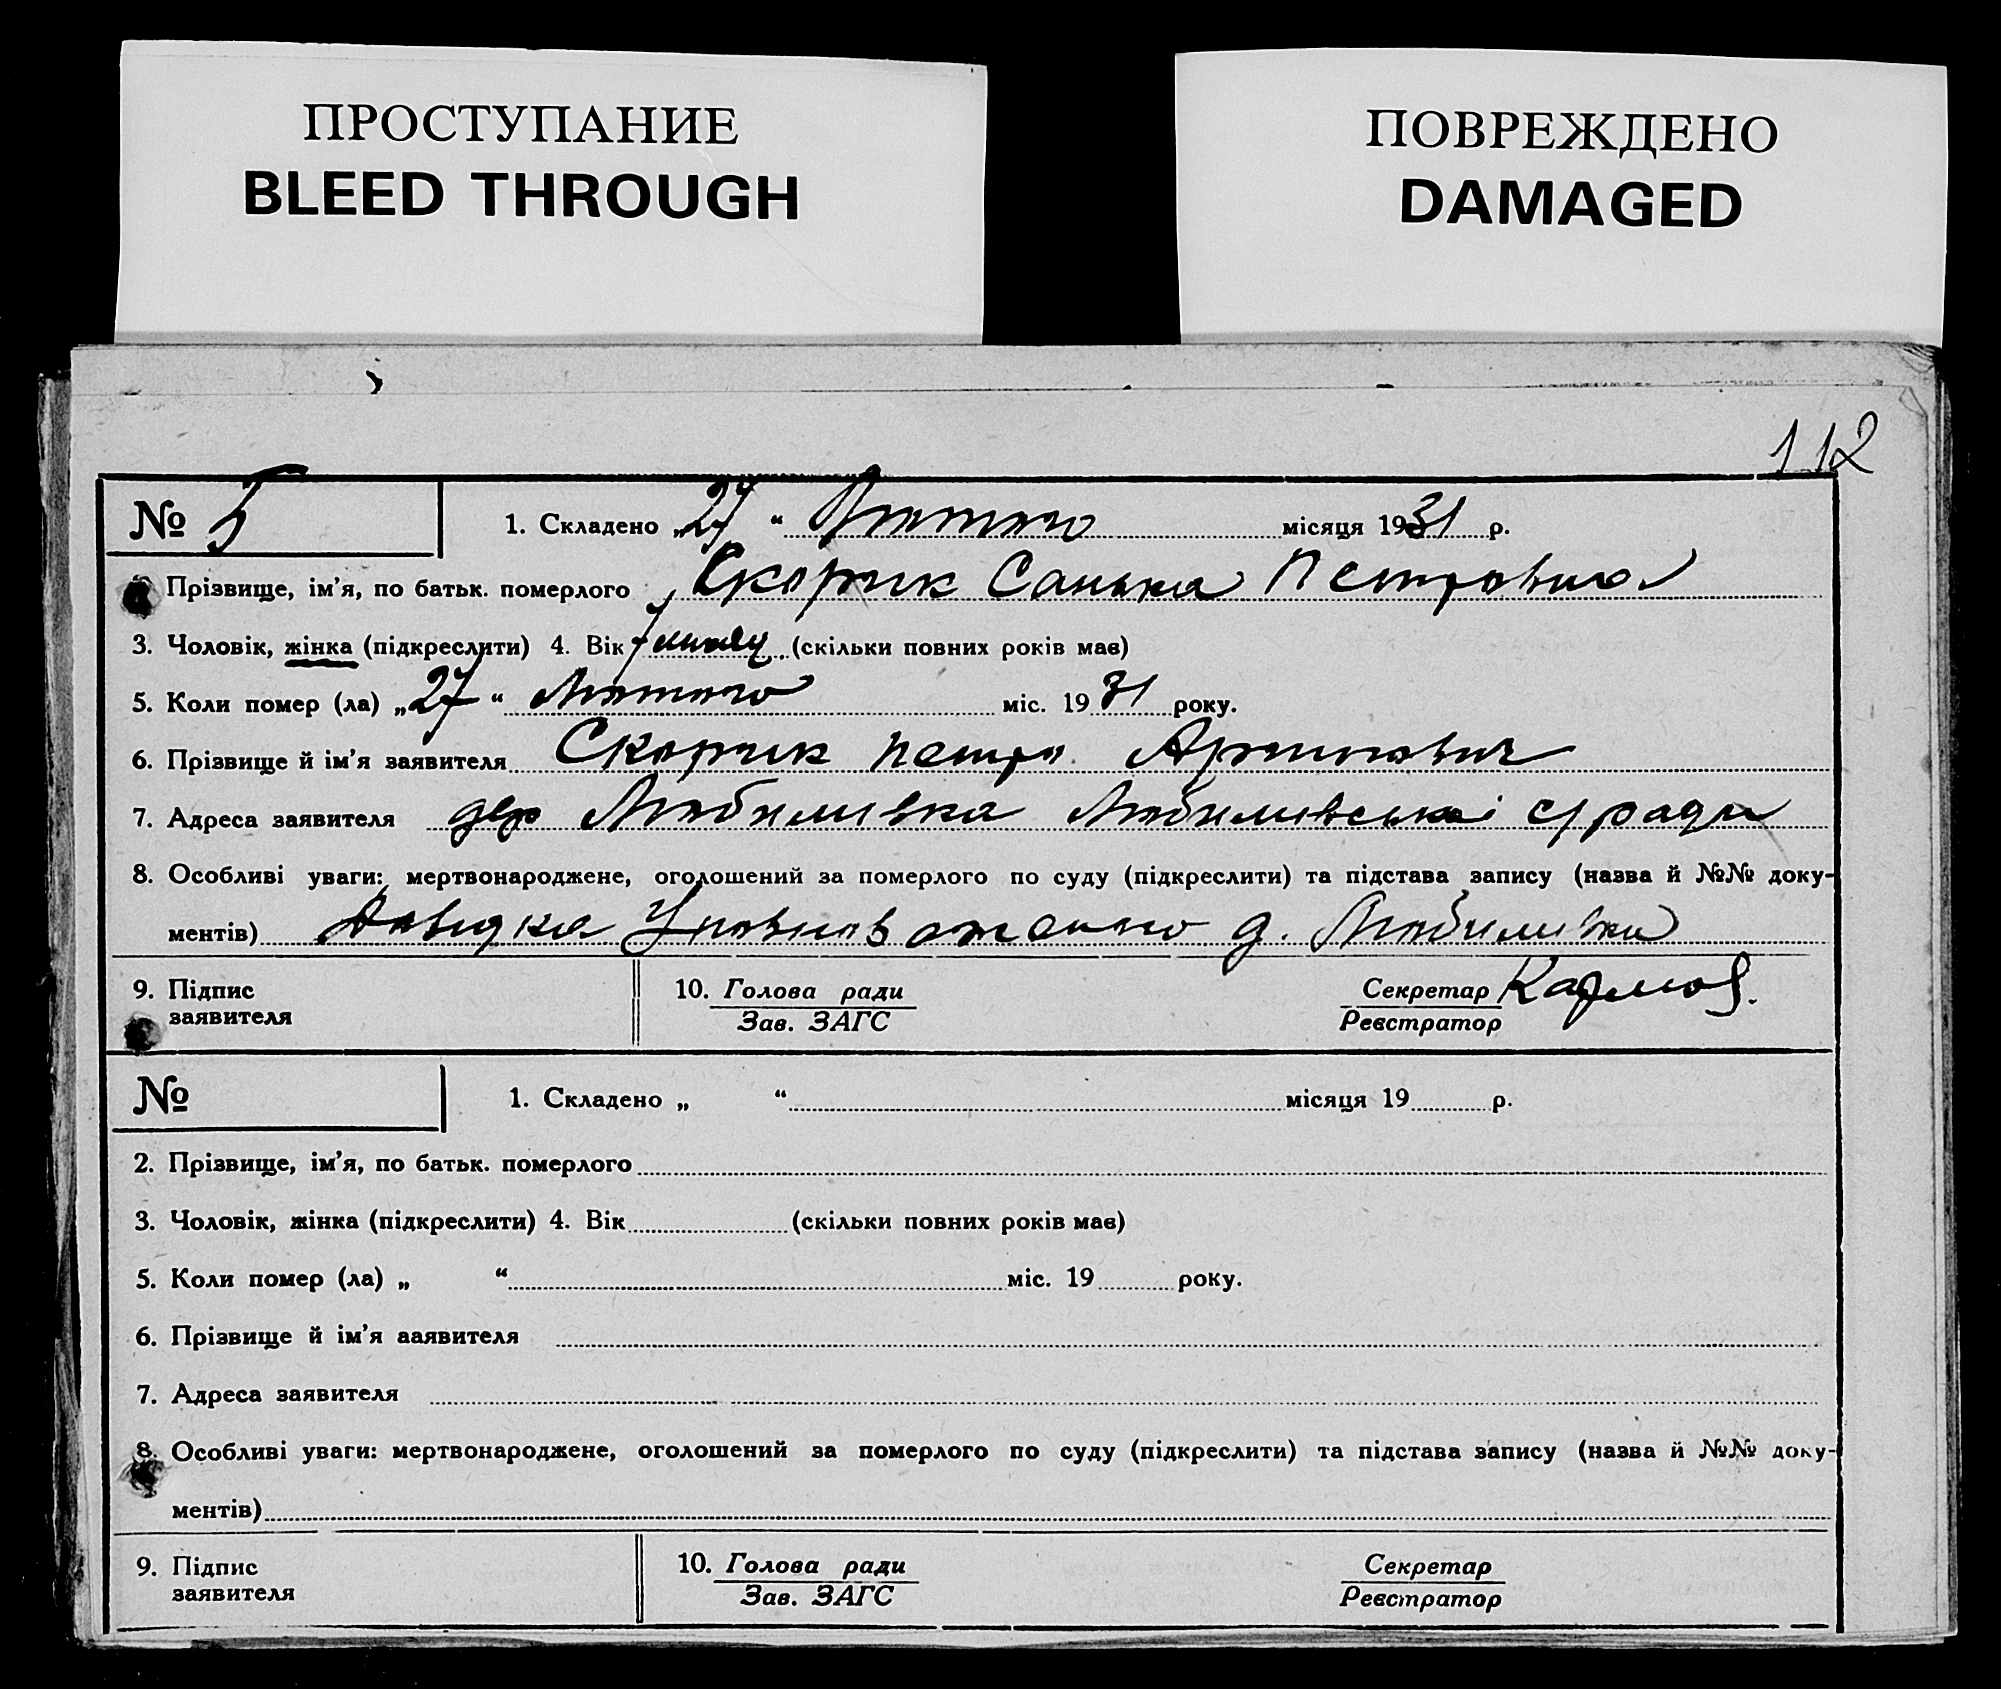 ПРОСТУПАНИЕ
BLEED THROUGH
ПОВРЕЖДЕНО
DAMAGED
112
№ 5
1. Складено „27“ Лютого місяця 1931 р.
Прізвище, ім’я, по батьк. померлого Скорик Санька Петровна
3. Чоловік, жінка (підкреслити) 4. Вік (скільки повних років має)
5. Коли помер (ла) „27“ Лютого міс. 1931 року.
6. Прізвище й ім’я заявителя Скорик Петро
7. Адреса заявителя дер Любимивка Любимивської с/ради
8. Особливі уваги: мертвонароджене, оголошений за померлого по суду (підкреслити) та підстава запису (назва й №№ доку-
ментів) Довидка Уповноваженого д. Любимивки
9. Підпис
заявителя
10. Голова ради
Зав. ЗАГС
Секретар
Реєстратор
№
1. Складено „ “ місяця 19 р.
2. Прізвище, ім’я, по батьк. померлого
3. Чоловік, жінка (підкреслити) 4. Вік (скільки повних років має)
5. Коли помер (ла) „ “ міс. 19 року.
6. Прізвище й ім’я ааявителя
7. Адреса заявителя
8. Особливі уваги: мертвонароджене, оголошений за померлого по суду (підкреслити) та підстава запису (назва й №№ доку-
ментів)
9. Підпис
заявителя
10. Голова ради
Зав. ЗАГС
Секретар
Реєстратор